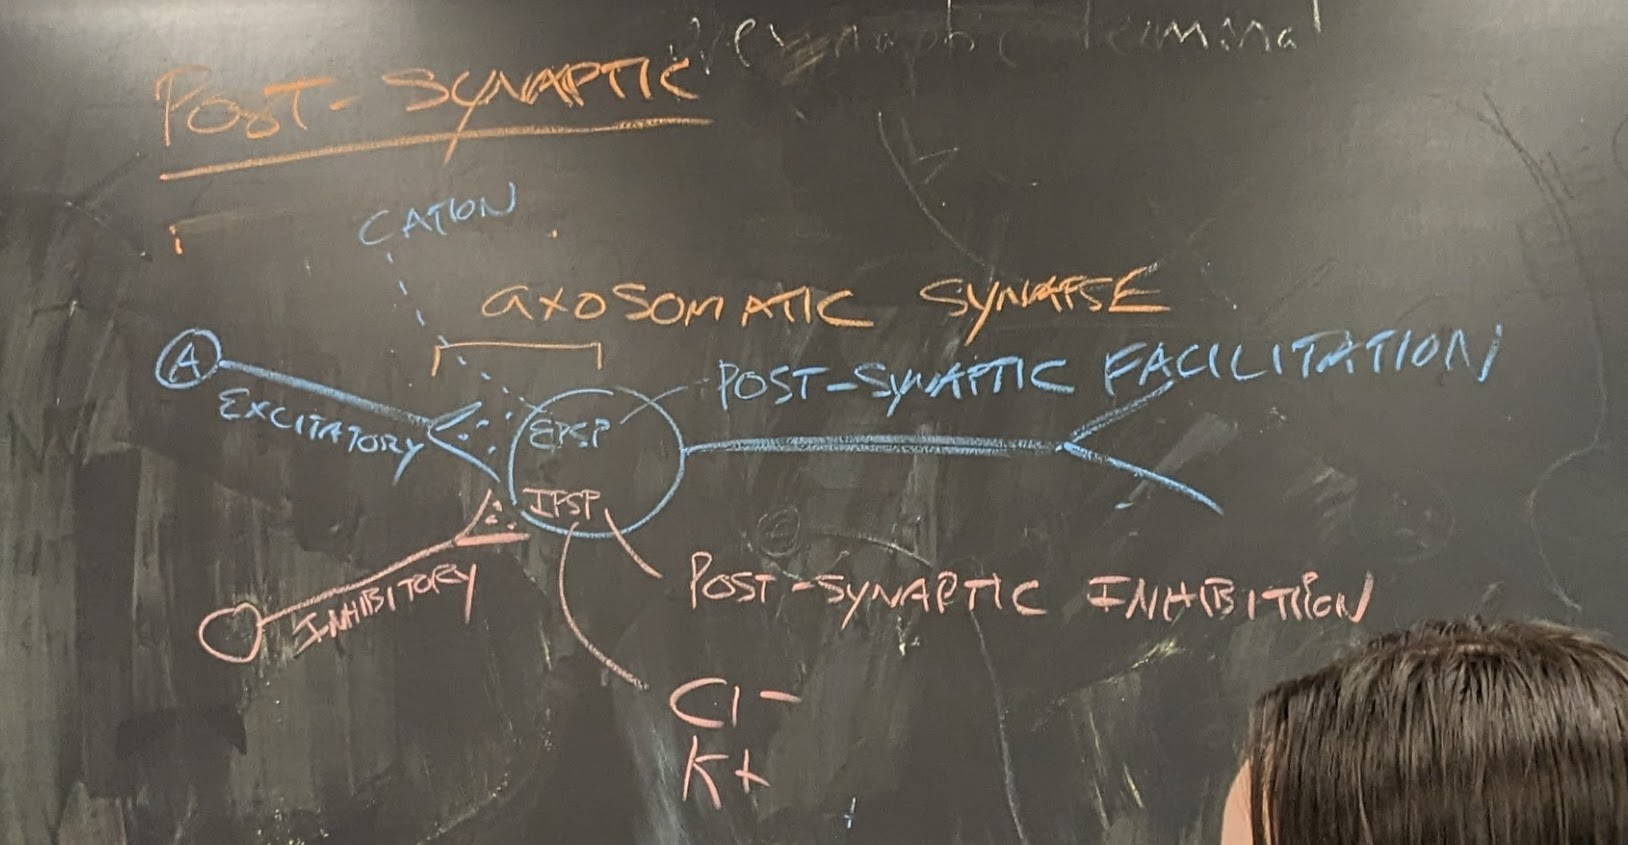 Presynaptic terminal
POST-SYNAPTIC
CATION
AXOSOMATIC SYNAPSE
A
EXCITATORY
EPSP
POST-SYNAPTIC FACILITATION
IPSP
INHIBITORY
POST-SYNAPTIC INHIBITION
Cl-
K+